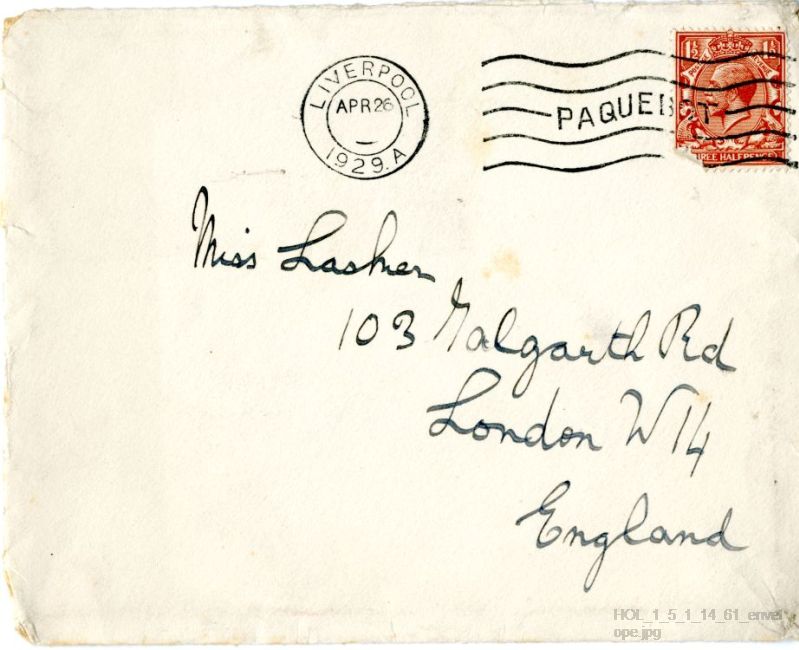 LIVERPOOL
APR 26
1929. A
PAQUEBOT
1½ 1½
THREE HALFPENCE
Miss Lasker
103 Talgarth Rd
London W14
England
HOL_1_5_1_14_61_envel
ope.jpg